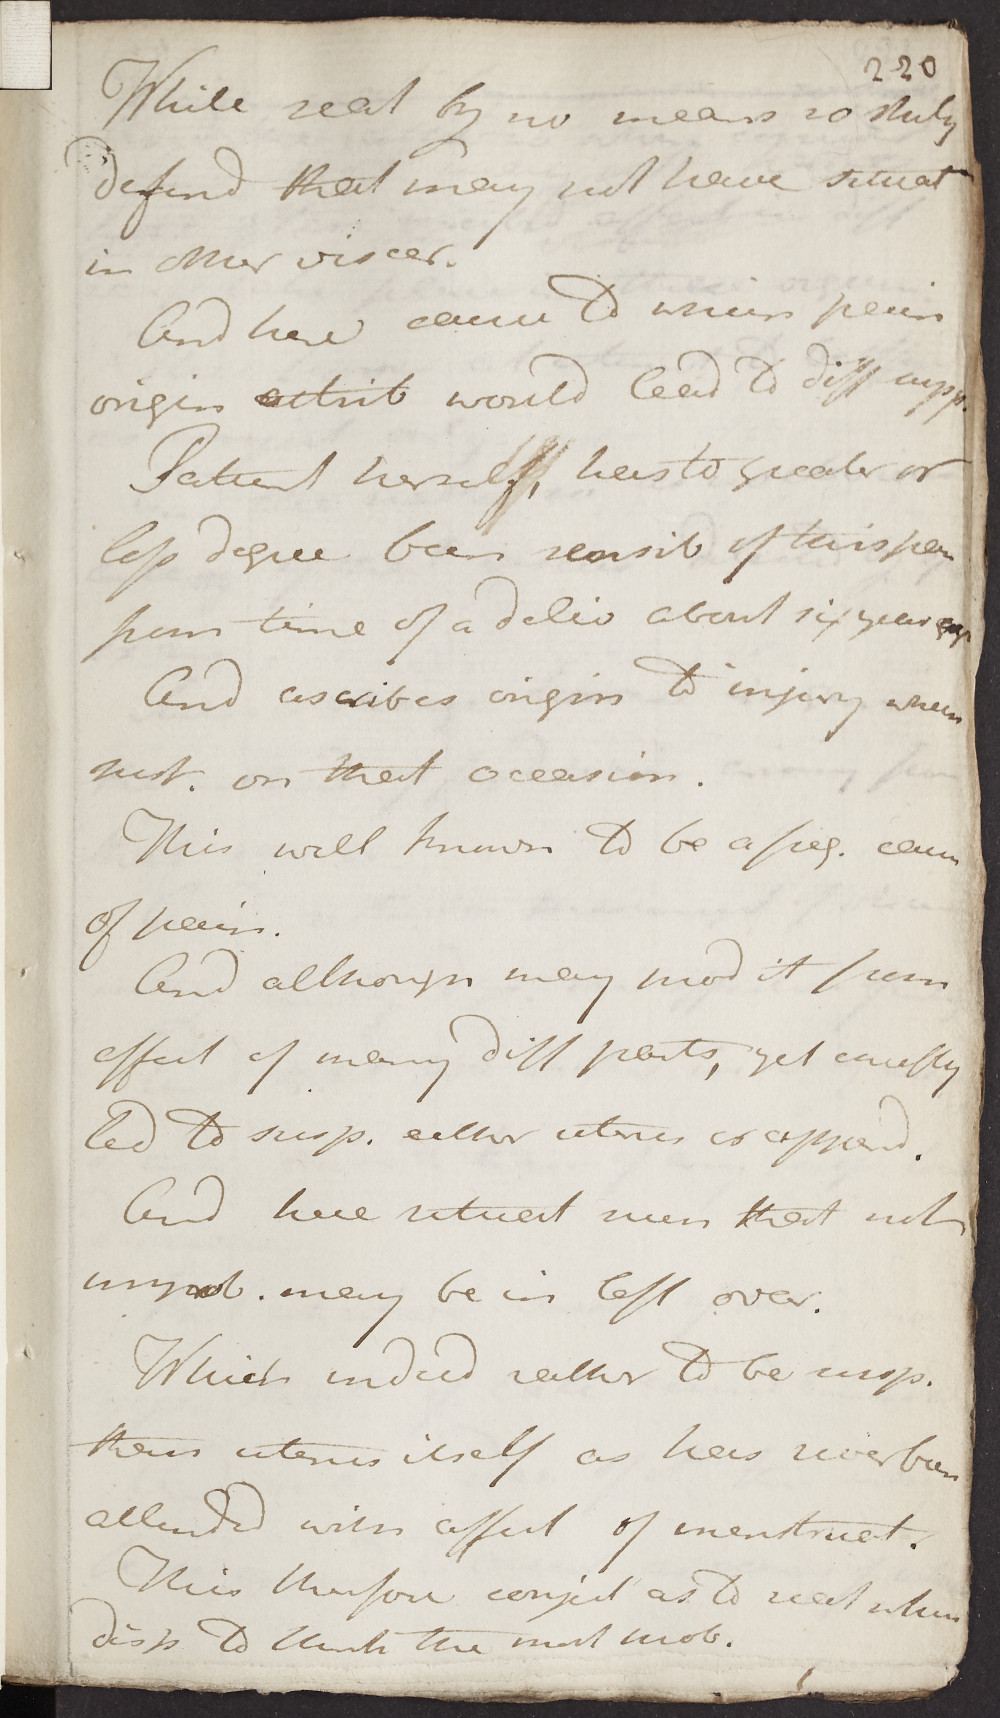 220
While seat by no means so strictly
defind that may not have situat
in other viscer.
And here cause to which pain
origin attrib would lead to diff supp.
Patient herself, has to greater or
less degree been sensib of this pain
from time of a deliv about six years ago
And ascribes origin to injury which
sust. on that occasion.
This well known to be a freq. cause
of pain.
And although may prod it from
affect of many diff parts, yet chiefly
led to susp. either uterus or append.
And here situat such that not
improb. may be in left ovar.
Which indeed rather to be susp.
than uterus itself as has never been
attended with affect of menstruat.
This therefore conject as to seat which
disp to think the most prob.